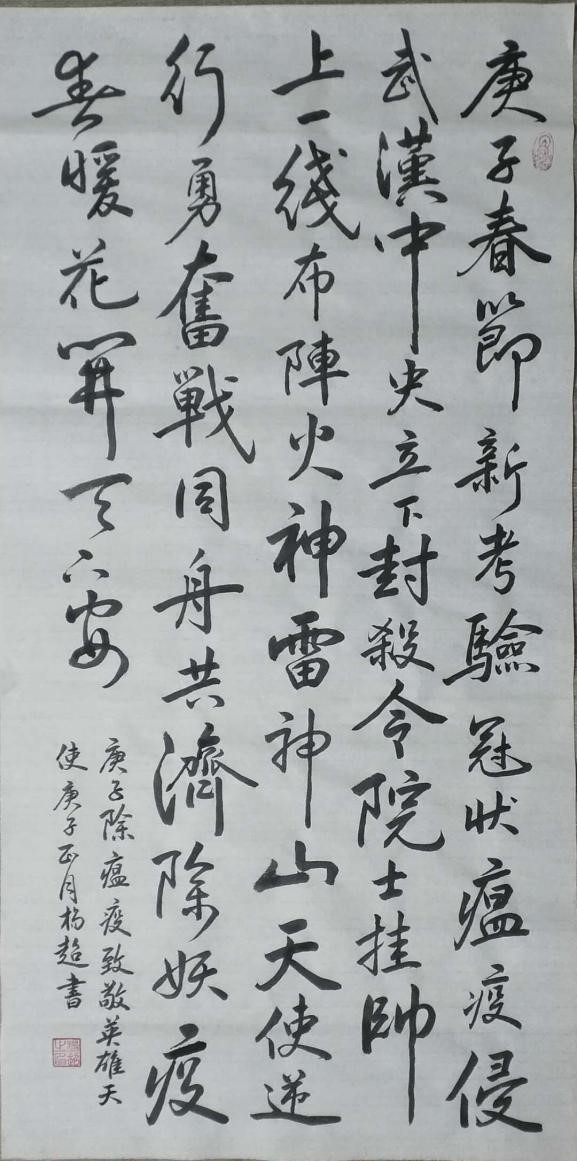 庚子春節新考驗冠狀瘟疫侵
武漢中央立下封殺令院士挂帥
上一綫布陣火神雷神山天使逆
行勇奮戰同舟共濟除妖疫
春暖花開天下安
庚子除瘟疫致敬英雄天
使庚子正月楊超書